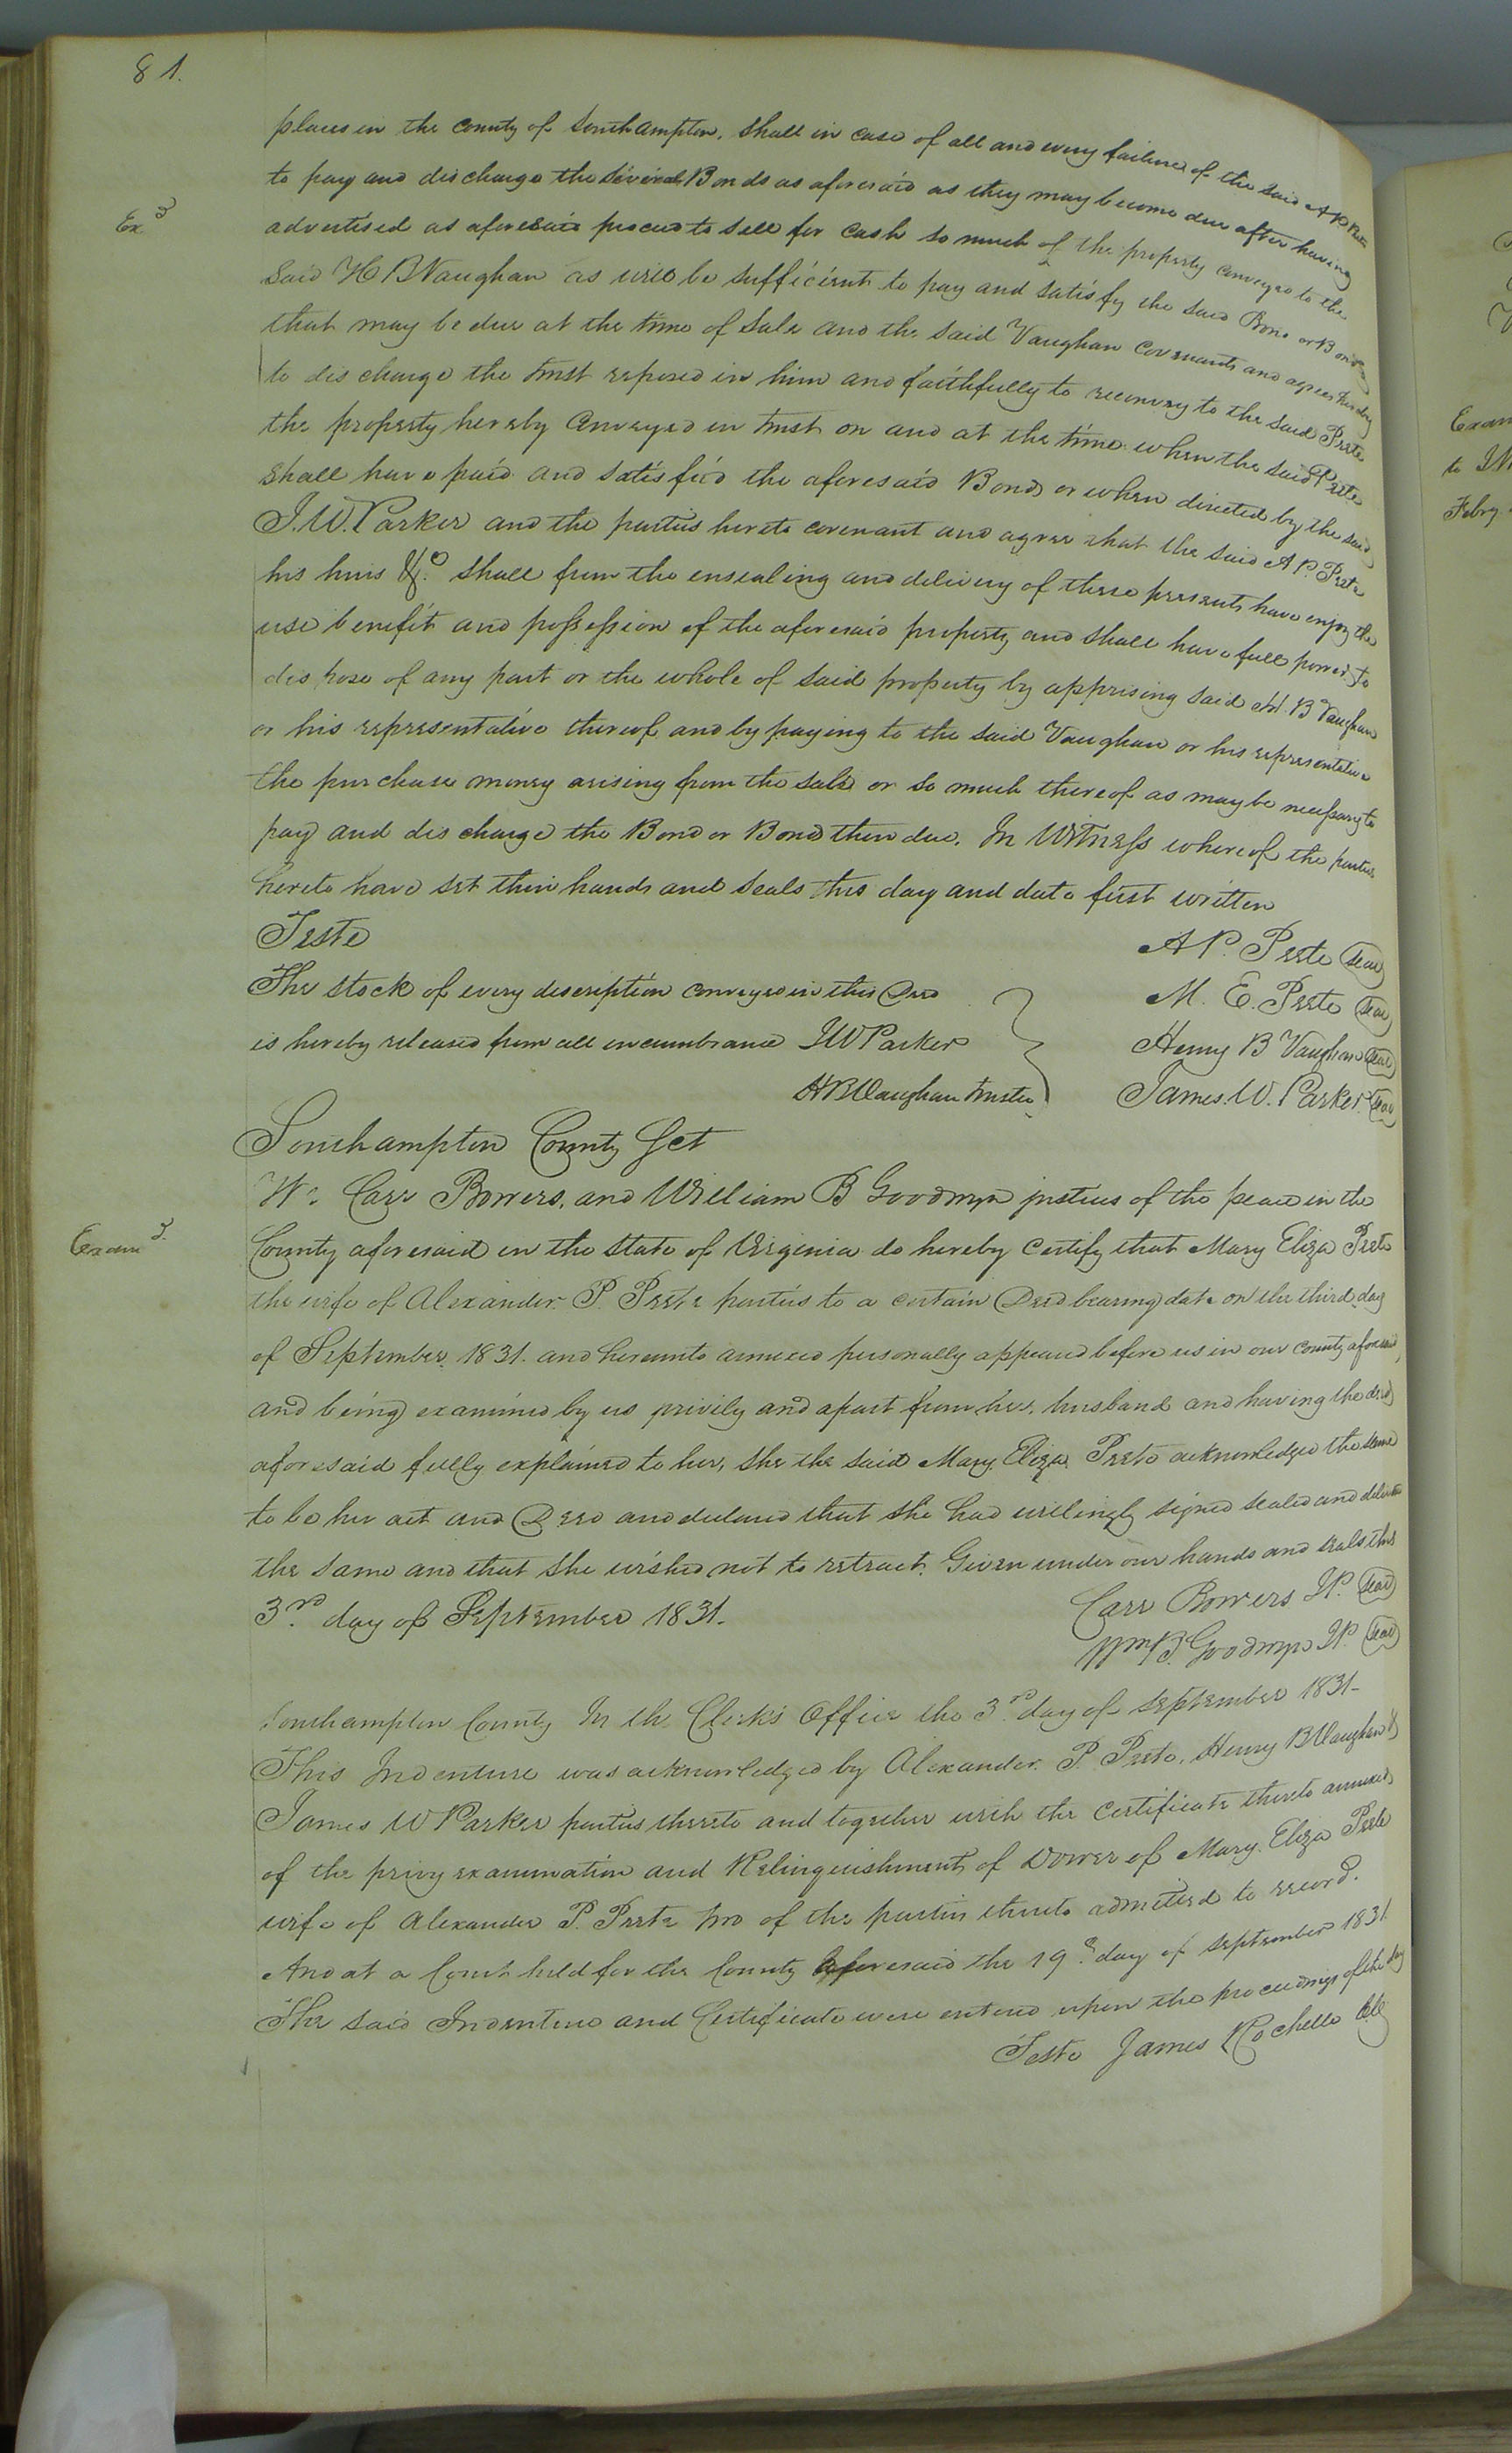 81.
places in the county of Southampton. Shall in case of all and every failure of the said A P Peete
to pay and discharge the several Bonds as aforesaid as they may become due after having
Ex^d
advertised as aforesaid proceed to sell for cash so much of the property conveyed to the
said H B Vaughan as will be sufficient to pay and satisfy the said Bond or Bonds
that may be due at the time of sale and the said Vaughan covenants and agrees
to discharge the trust reposed in him and faithfully to reconvey to the said Peete
the property hereby conveyed in trust on and at the time when the said Peete
shall have paid and satisfied the aforesaid Bonds or when directed by the said
J. W. Parker and the parties hereto covenant and agree that the said A P. Peete
his heirs &c. shall from the ensealing and delivery of these presents have enjoy the
use benefit and possession of the aforesaid property and shall have full power to
dispose of any part or the whole of said property by apprising said H. B Vaughan
or his representative thereof and by paying to the said Vaughan or his representative
the purchase money arising from the sale or so much thereof as may be necessary to
pay and discharge the Bond or Bonds then due. In Witness whereof the parties
hereto have set their hands and seals this day and date first written
Teste
A P. Peete Seal
The stock of every description conveyed in this Deed
M. E. Peete Seal
is hereby released from all encumbrance J W Parker
Henry B Vaughan Seal
H B Vaughan Trustee
James. W. Parker Seal
Southampton County Sct
We Carr Bowers, and William B Goodwyn justices of the peace in the
Exam^d.
County aforesaid in the state of Virginia do hereby certify that Mary Eliza Peete
the wife of Alexander. P. Peete parties to a certain Deed bearing date on the third day
of September 1831. and hereunto annexed personally appeared before us in our county aforesaid,
and being examined by us privily and apart from her husband and having the deed
aforesaid fully explained to her, she the said Mary Eliza Peete acknowledged the same
to be her act and Deed and declared that she had willingly signed sealed and delivered
the same and that she wished not to retract. Given under our hands and seals this
3rd. day of September 1831.
Carr Bowers J P. Seal
Wm B. Goodwyn J P. Seal
Southampton County In the Clerk's Office the 3rd. day of September 1831-
This Indenture was acknowledged by Alexander. P. Peete, Henry B Vaughan &
James W Parker parties thereto and together with the certificate thereto annexed
of the privy examination and Relinquishment of Dower of Mary. Eliza Peete
wife of Alexander P. Peete two of the parties thereto admitted to record.
And at a Court held for the County aforesaid the 19th. day of September 1831.
The said Indenture and Certificate were entered upon the proceedings of the day
Teste James Rochelle Clk
Exam
to
Feby.